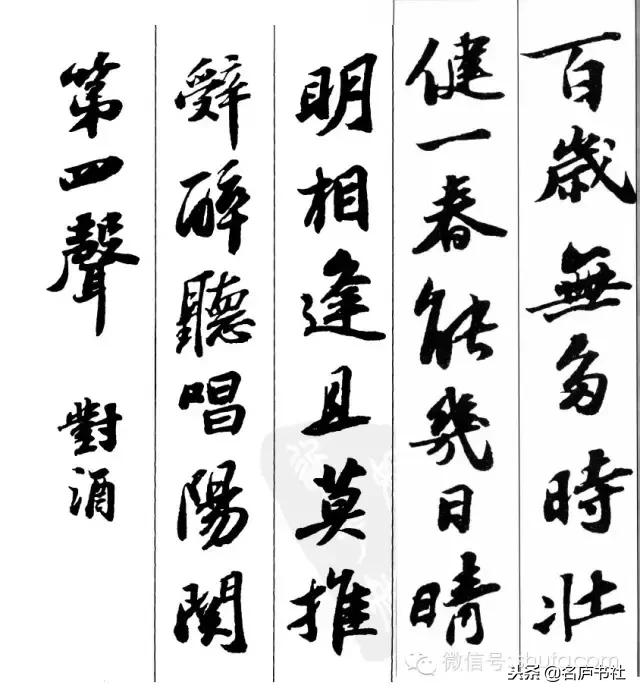 百歲無多時壯
健一春能幾日晴
明相逢且莫推
辭醉聽唱陽関
第四聲 對酒
微信号: shufa
头条@名庐书社